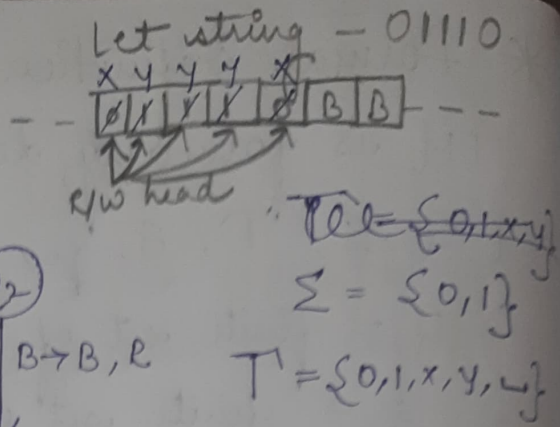 Let string - 01110
X Y Y Y X
0 1 1 1 0 B B
R/W head
Σ = {0,1}
2
B→B, R
Γ = {0,1,x,y,⊔}